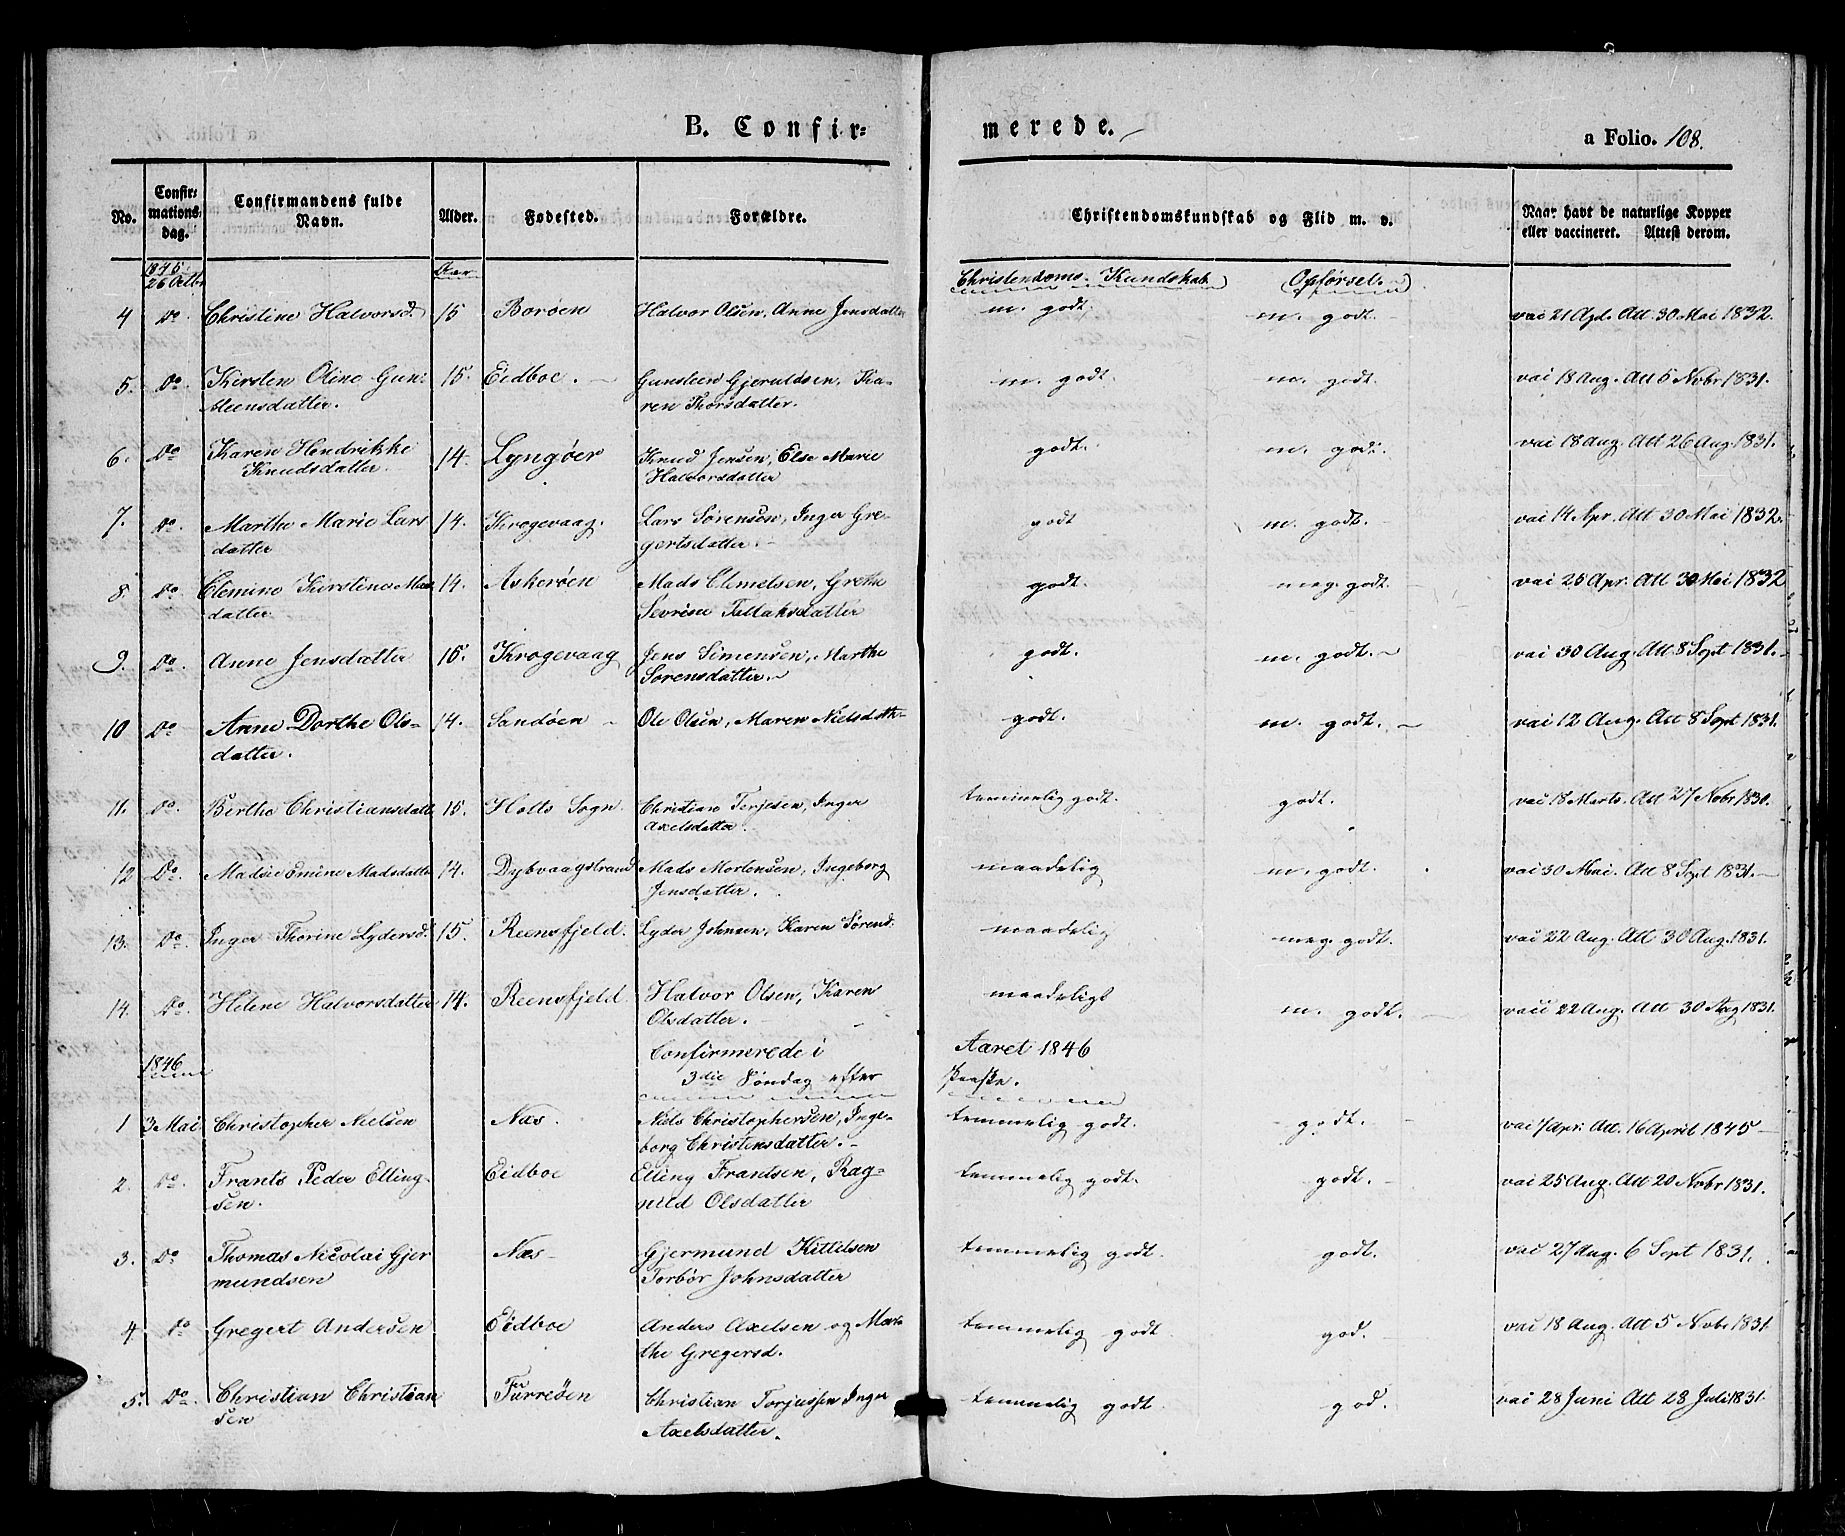 B. Confir=
merede.
a Folio. 108.
No. Confir=mations=dag. Confirmandens fulde Navn. Alder. Fødested. Forældre. Christendomskundskab og Flid m. v. Naar havt de naturlige Kopper eller vaccineret. Attest derom.
1845 26 Octbr Aar Christendoms Kundskab Opførsel.
4 Do Christine Halvorsd. 15 Borøen Halvor Olsen, Anne Jensdatter m. godt. m. godt. vac 21 Apl. Att. 30 Mai 1832.
5. Do Kirsten Oline Gun- 15. Eidboe. Gunsteen Gjeruldsen, Ka- m. godt. m. godt. vac 18 Aug. Att 5 Nobr 1831.
steensdatter. ren Thorsdatter.
6. Do Karen Hendrikke 14. Lyngøer Knud Jensen, Else Marie godt. m. godt. vac 18 Aug. Att 26 Aug. 1831.
Knudsdatter. Halvorsdatter
7. Do Marthe Marie Lars 14. Krogevaag. Lars Sørensen, Inger Gre- godt m. godt. vac 14 Apr. Att 30 Mai 1832.
datter gertsdatter.
8. Do Clemine Kirstine Mads 14. Askerøen Mads Clemetsen, Grethe godt. meg. godt. vac 25 Apr. Att 30 Mai 1832
datter Sevrine Tellaksdatter
9. Do Anne Jensdatter 16. Krogevaag Jens Simensen, Marthe godt. m. godt. vac 30 Aug. Att 8 Sept 1831.
Sørensdatter.
10 Do Anne Dorthe Ols- 14. Sandøen Ole Olsen, Maren Nielsdatter godt. m. godt. vac 12 Aug. Att 8 Sept 1831.
datter.
11. Do Berthe Christiansdatter 15. Holts Sogn Christian Terjesen, Inger temmelig godt. godt. vac 18 Marts. Att 27 Nobr 1830.
Axelsdatter.
12 Do. Madsie Emine Madsdatter 14. Dybvaagstrand Mads Mortensen, Ingeborg maadelig m. godt. vac 30 Mai. Att 8 Sept 1831.
Jensdatter.
13. Do. Inger Thorine Lydersd. 15. Reensfjeld. Lyder Johnsen, Karen Sørend. maadelig meg. godt. vac 22 Aug. Att 30 Aug. 1831.
14. Do. Helene Halvorsdatter 14. Reensfjeld Halvor Olsen, Karen maadeligt m. godt. vac 22 Aug. Att 30 Aug 1831.
Olsdatter.
1846 Confirmerede i Aaret 1846
3die Søndag efter Paaske.
1 3 Mai Christopher Nielsen Næs. Niels Christophersen, Inge- temmelig godt. godt. vac 7 Apr. Att. 16 April 1845
borg Christensdatter.
2. Do. Frants Peder Elling- Eidboe Elling Frantsen, Rag- temmelig godt. godt. vac 25 Aug. Att 20 Nobr 1831.
sen. nild Olsdatter
3. Do Thomas Nicolai Gjer Næs Gjermund Kittilsen temmelig godt. godt. vac 27 Aug. 6 Sept 1831.
mundsen Torbør Johnsdatter
4 Do Gregert Andersen Eidboe Anders Axelsen og Mar- temmelig godt god. vac 18 Aug. Att 5 Nobr 1831
the Gregersd.
5. Do. Christian Christian Furreøen Christian Torjussen Inger temmelig godt god. vac 28 Juni Att 28 Juli 1831.
sen Axelsdatter.